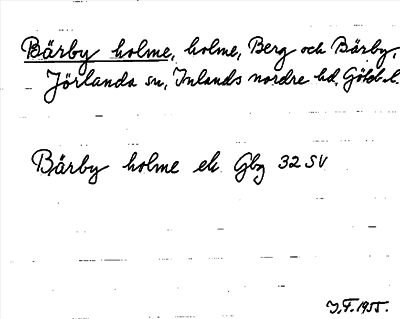 Bärby holme, holme, Berg och Bärby,
Jörlanda sn, Inlands nordre hd, Göteb. l.
Bärby holme ek Gbg 32 SV
J.F. 1955.